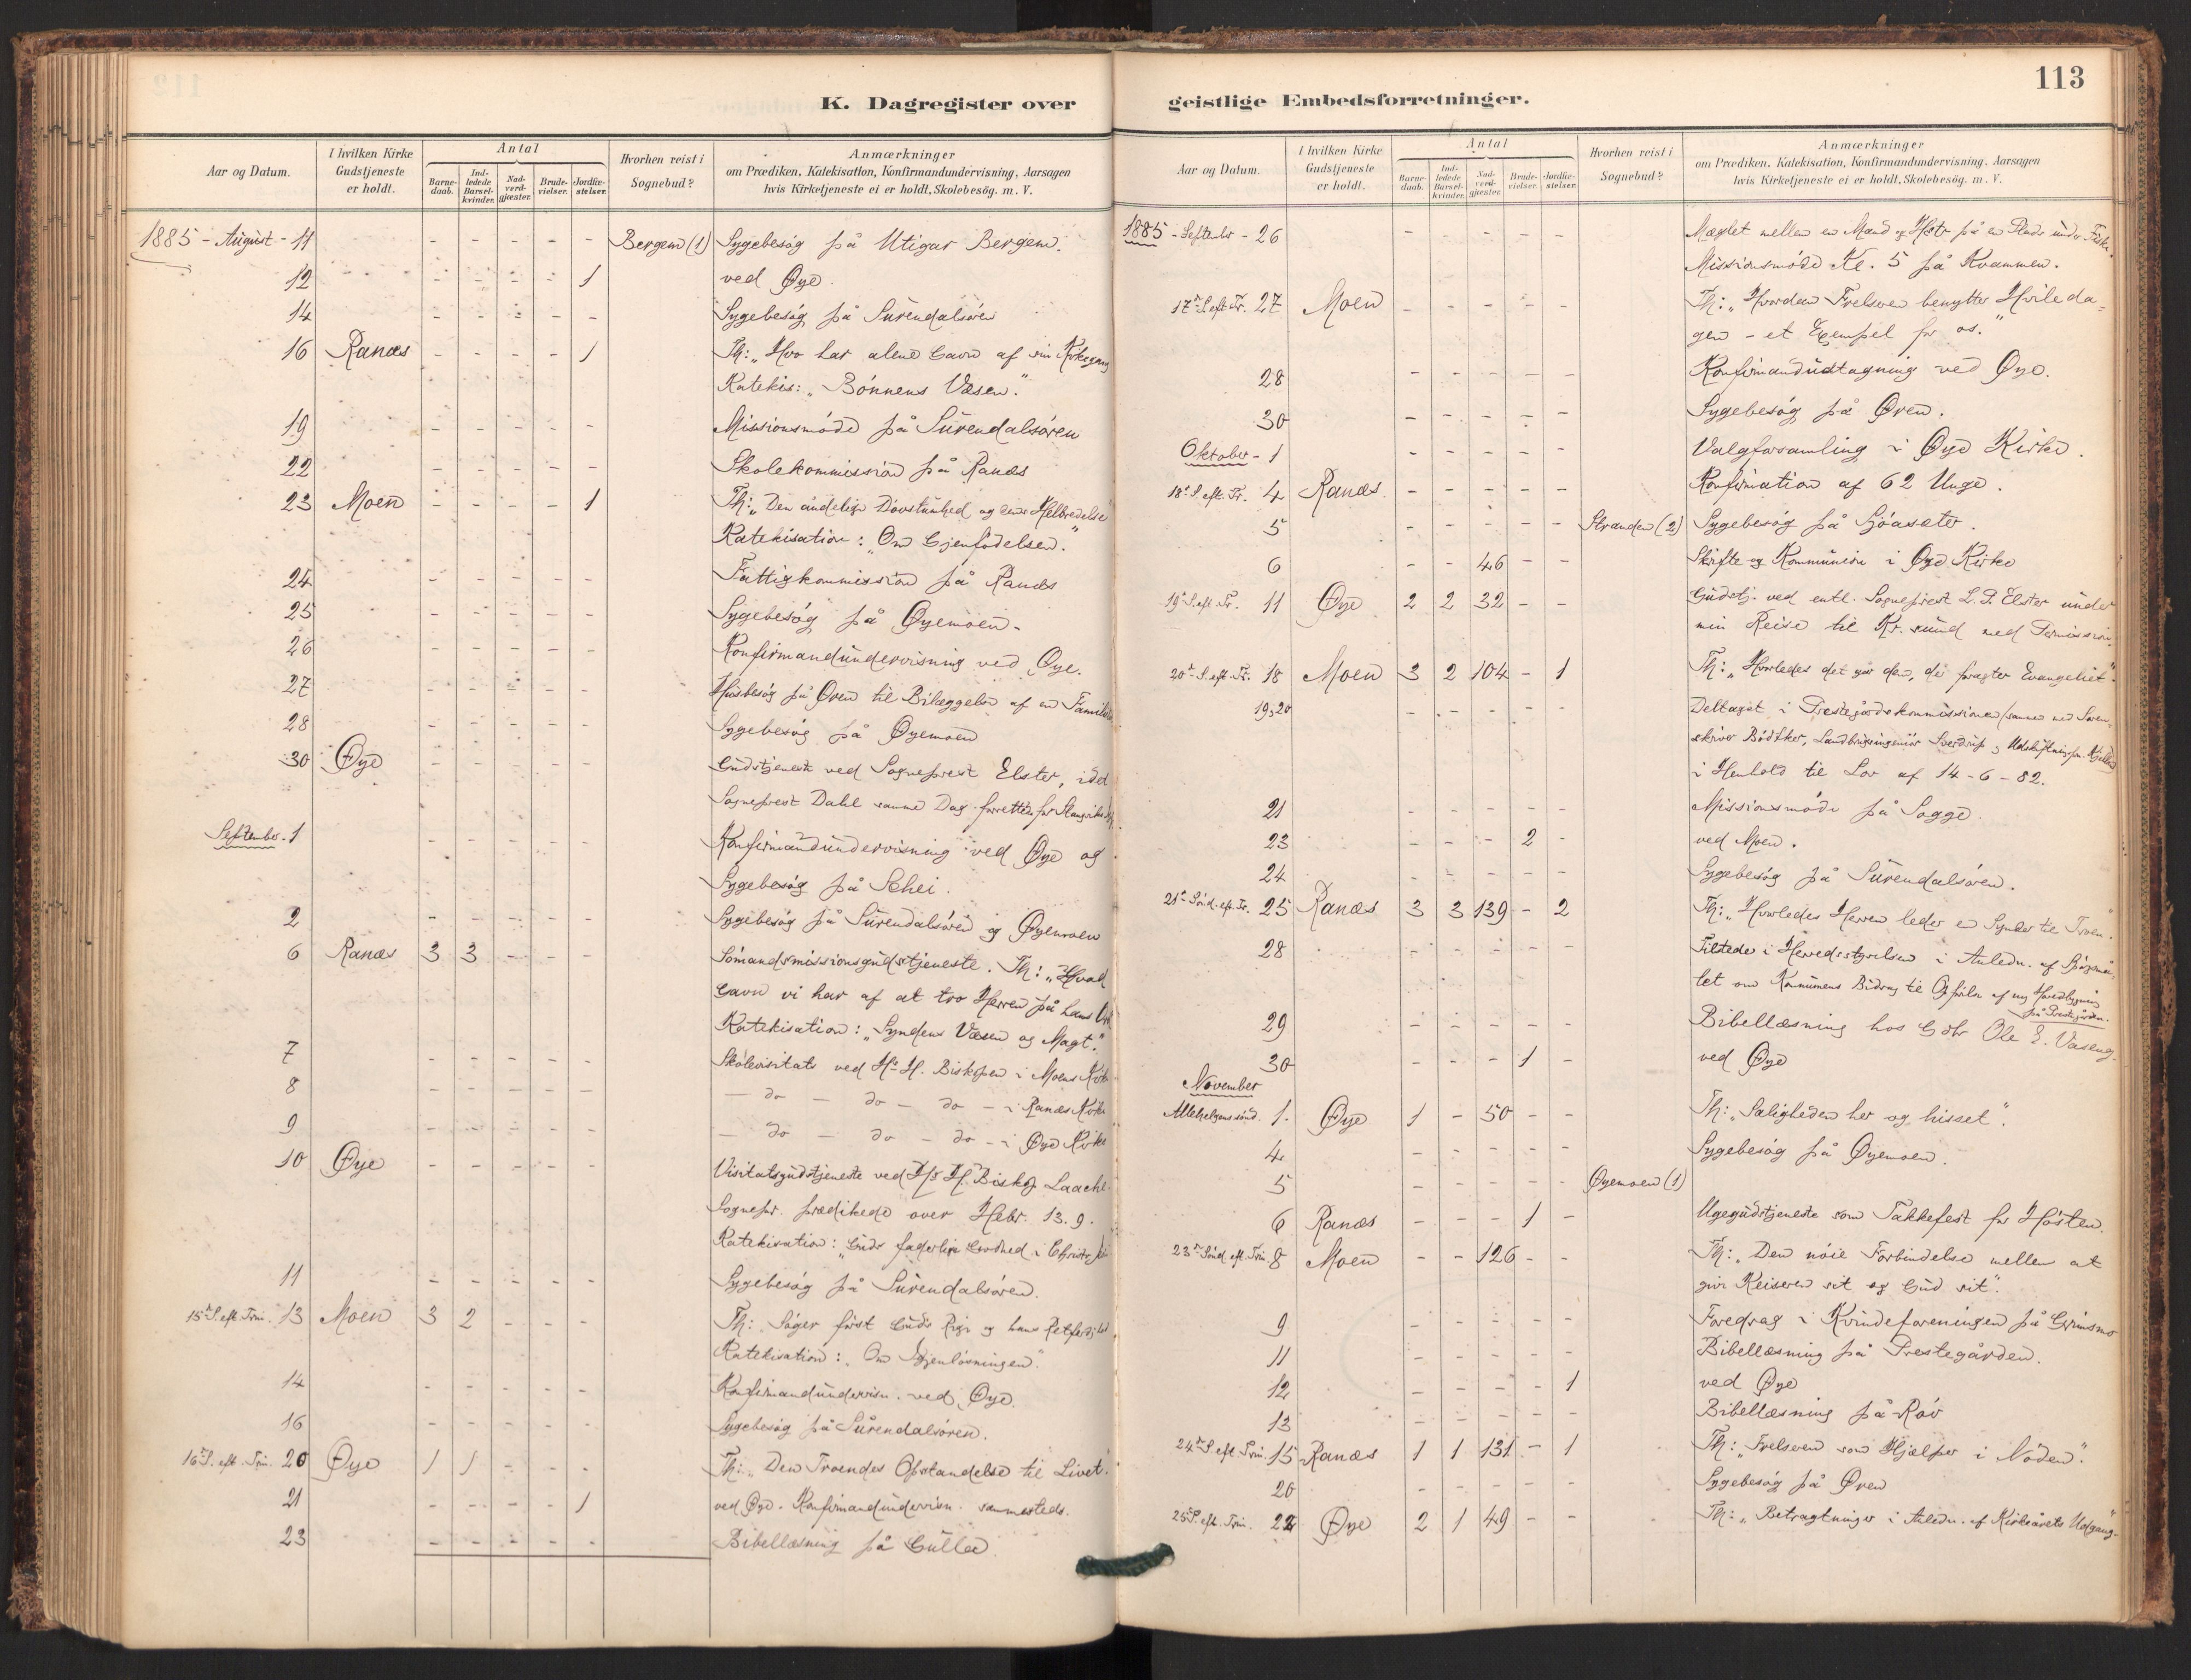 K. Dagregister over
Aar og Datum.
I hvilken Kirke Gudstjeneste er holdt.
Antal
Barnedaab.
Indledede Barselkvinder.
Nadverdgjæster.
Brudevielser.
Jordfæstelser.
Hvorhen reist i Sognebud?
Anmærkninger
om Prædiken, Katekisation, Konfirmandundervisning, Aarsagen
hvis Kirketjeneste ei er holdt, Skolebesög. m. V.
1885 - August - 11 - - - - - Bergem (1) Sygebesøg på Utigar Bergem.
12 - - - - 1 ved Øye.
14 - - - - - Sygebesøg på Surendalsøren
16 Ranæs - - - - 1 Th: "Hvo har alene Gavn af sin Kirkegang
Katekis: "Bønnens Væsen."
19 - - - - - Missionsmøde på Surendalsøren
22 - - - - - Skolekommission på Ranæs
23 Moen - - - - 1 Th: "Den åndelige Døvstumhed og dens Helbredelse"
Katekisation: "Om Gjenfødelsen."
24 - - - - - Fattigkommission på Ranæs
25 - - - - - Sygebesøg på Øyemoen.
26 - - - - - Konfirmandundervisning ved Øye.
27 - - - - - Husbesøg på Øren til Bilæggelse af en
28 - - - - - Sygebesøg på Øyemoen
30 Øye - - - - - Gudstjeneste ved Sogneprest Elster, idet
Sogneprest Dahl samme Dag forrettede for
September. 1 - - - - - Konfirmandundervisning ved Øye og
Sygebesøg på Schei.
2 - - - - - Sygebesøg på Surendalsøren og Øyemoen
6 Ranæs 3 3 - - - Sømandsmissionsgudstjeneste. Th: "Hvad
Gavn vi har af at tro Herren på hans Ord
Katekisation: "Syndens Væsen og Magt."
7 - - - - - Skolevisitats ved Hr. H. Biskopen i Moens Kirke
8 - - - - - - do - do - do - i Ranæs Kirke
9 - - - - - - do - do - do - i Øye Kirke
10 Øye - - - - - Visitatsgudstjeneste ved Hr. H. Biskop Laache.
Sognepr. prædikede over Hebr. 13. 9.
Katekisation: "Guds faderlige Godhed i Christo
11 - - - - - Sygebesøg på Surendalsøren.
15de S. eft. Trin. 13 Moen 3 2 - - - Th: Søger først Guds Rige og hans Retfærdighed
Katekisation: "Om Gjenløsningen."
14 - - - - - Konfirmandundervisn. ved Øye.
16 - - - - - Sygebesøg på Surendalsøren.
16de S. eft. Trin. 20 Øye 1 1 - - - Th: "Den Troendes Opstandelse til Livet."
21 - - - - 1 ved Øye. Konfirmandundervisn. sammesteds.
23 - - - - - Bibellæsning på Gulla.
113
geistlige Embedsforretninger.
Aar og Datum.
I hvilken Kirke Gudstjeneste er holdt.
Antal
Barnedaab.
Indledede Barselkvinder.
Nadverdgjæster.
Brudevielser.
Jordfæstelser.
Hvorhen reist i Sognebud?
Anmærkninger
om Prædiken, Katekisation, Konfirmandundervisning, Aarsagen
hvis Kirketjeneste ei er holdt, Skolebesög. m. V.
1885 - September - 26 - - - - - Mæglet mellem en Mand og Hstr på en Plads under
Missionsmøde Kl. 5 på Kvammen.
17de S. eft. Tr. 27 Moen - - - - - Th: "Hvordan Frelseren benytter Hvileda=
gen - et Exempel for os."
28 - - - - - Konfirmandudtagning ved Øye.
30 - - - - - Sygebesøg på Øren.
Oktober - 1 - - - - - Valgforsamling i Øye Kirke.
18de S. eft. Tr. 4 Ranæs - - - - - Konfirmation af 62 Unge.
5 - - - - - Stranden (2) Sygebesøg på Sjøasæter.
6 - - 46 - - Skrifte og Kommunion i Øye Kirke
19de S. eft. Tr. 11 Øye 2 2 32 - - Gudstj. ved entl. Sogneprest L. P. Elster under
min Reise til Kr.sund med Permission.
20de S. eft. Tr. 18 Moen 3 2 104 - 1 Th: "Hvorledes det går den, der foragter Evangeliet".
19, 20 - - - - - Deltaget i Prestegårdskommissionen (sammen med Soren-
skriver Bødtker, Landbrugsingeniør Sverdrup og
i Henhold til Lov af 14-6-82.
21 - - - - - Missionsmøde på Sogge.
23 - - - 2 - ved Moen.
24 - - - - - Sygebesøg på Surendalsøren.
21de Sønd. eft. Tr. 25 Ranæs 3 3 139 - 2 Th: "Hvorledes Herren leder en Synder til Troen."
28 - - - - - Tilstede i Herredsstyrelsen i Anledn. af Spørgsmå-
let om Kommunens Bidrag til Opførelse af ny Hovedbygning
på Prestegården.
29 - - - - - Bibellæsning hos Gdbr Ole E. Vaseng.
30 - - - 1 - ved Øye
November
Allehelgenssønd. 1. Øye 1 - 50 - - Th: "Saligheden her og hisset".
4 - - - - - Sygebesøg på Øyemoen.
5 - - - - - Øyemoen (1)
6 Ranæs - - - 1 - Ugegudstjeneste som Takkefest for Høsten.
23de Sønd. eft. Trin. 8 Moen - - 126 - - Th: "Den nøie Forbindelse mellem at
give Keiseren sit og Gud sit".
9 - - - - - Foredrag i Kvindeforeningen på Grimsmo
11 - - - - - Bibellæsning på Prestegården.
12 - - - - 1 ved Øye
13 - - - - - Bibellæsning på Røv
24de S. eft. Trin. 15 Ranæs 1 1 131 - 1 Th: "Frelseren som Hjælper i Nøden".
20 - - - - - Sygebesøg på Øren
25de S. eft. Trin. 22 Øye 2 1 49 - - Th: "Betragtninger i Anledn. af Kirkeårets Udgang"